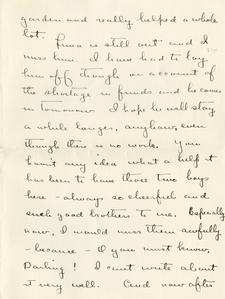 garden and really helped a whole
lot. is still out and I
miss him. I have had to lay
him off though on account of
the shortage in funds and he comes
in tomorrow. I hope he will stay
a while longer, anyhow, even
though there is no work. You
haven't any idea what a help it
has been to have those two boys
here - always so cheerful and
such good brothers to me. Especially
now, I would miss them awfully
- because - O you must know,
Darling! I can't write about
it very well. And now after